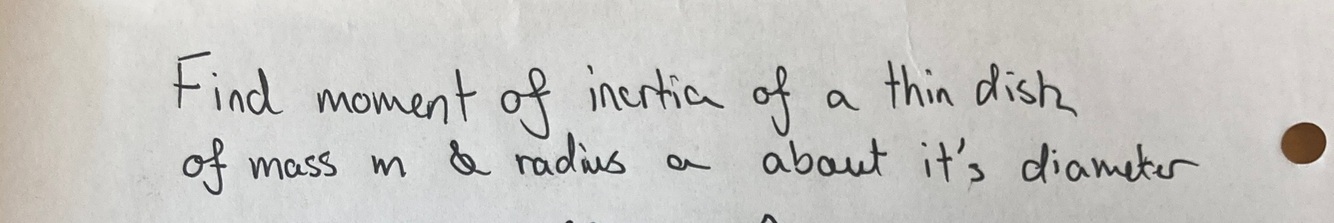 Find moment of inertia of a thin disk
of mass m & radius a about it's diameter